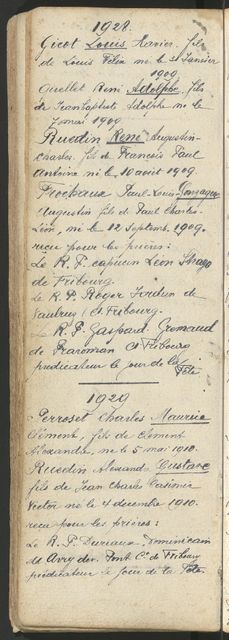 1928.
Gicot Louis Xavier, fils
de Louis Félix né le 31 Janvier
1909
Quellet René Adolphe, fils
de Jean Baptiste Adolphe né le
7 mai 1909
Ruedin René Augustin-
Charles, fils de François Paul
Antoine né le 10 août 1909.
Frochaux Paul-Louis-Gonzague
Augustin fils de Paul Charles-
Léon, né le 12 Septemb. 1909.
reçu pour les prières:
Le R. P. capucin Léon
de Fribourg.
Le R. P. Roger Jordan de
Vaulruz Ct Fribourg.
Le R. P. Gaspard Gremaud
de Praroman Ct Fribourg
prédicateur le jour de la Fête
1929
Perroset Charles Maurice
Clément, fils de Clément
Alexandre, né le 5 mai 1910.
Ruedin Alexandre Gustave
fils de Jean Charles Casimir
Victor né le 4 décembre 1910.
reçu pour les prières:
Le R. P. Dominicain
de Avry dev. Pont Ct de Fribourg
prédicateur le jour de la Fête.